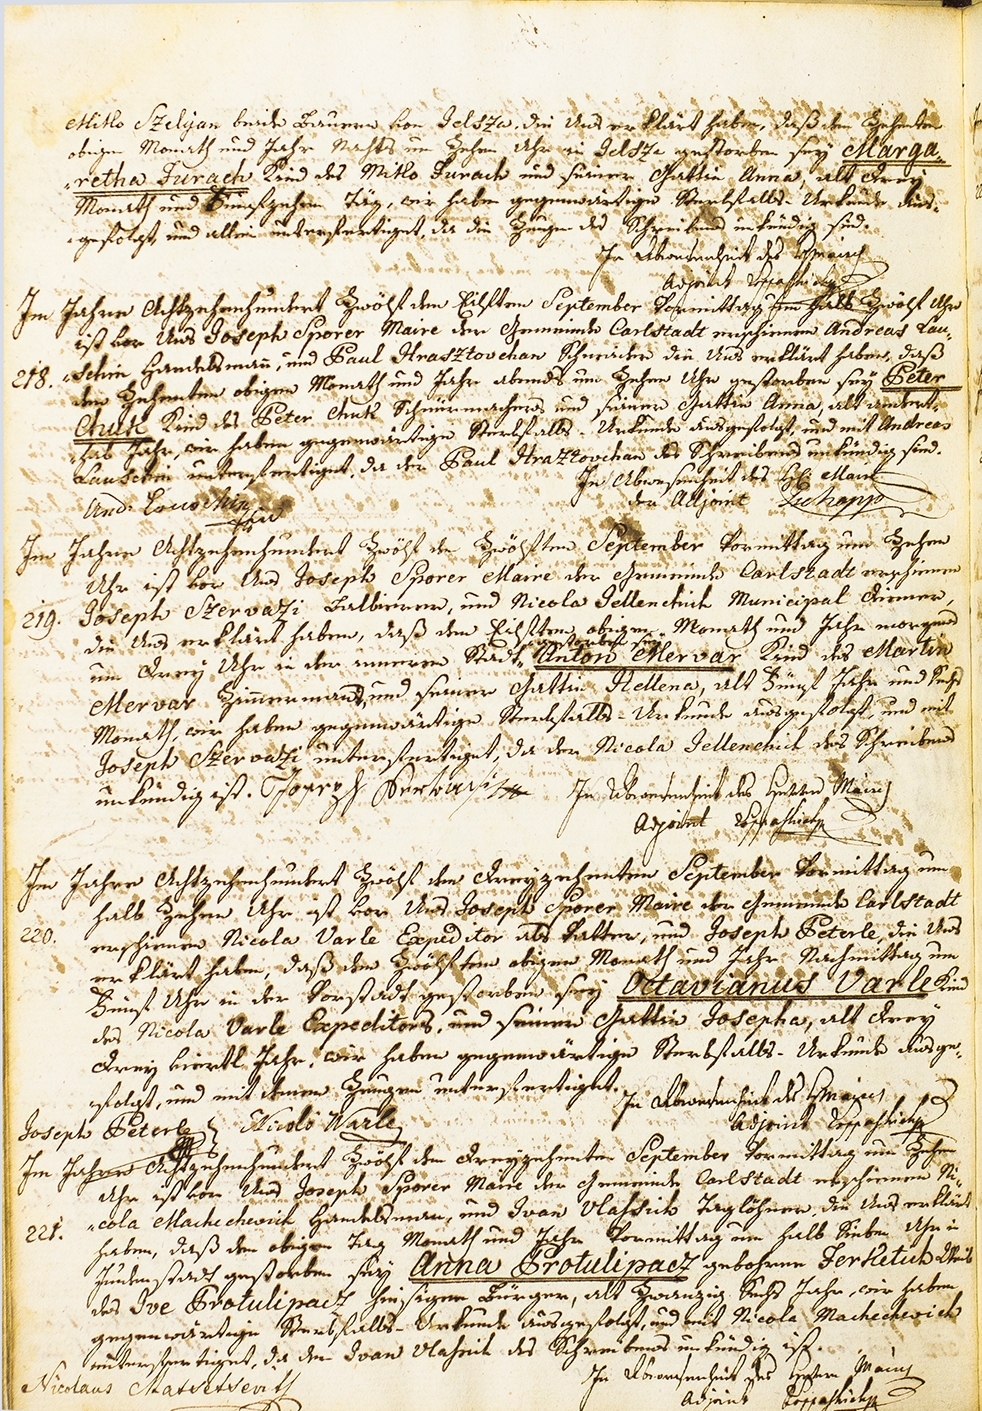 Mitto Szelyan beide Bauern von Jelsza, die Uns erklärt haben, daß den Zehenten
obigen Monath und Jahr Nachts um Zehen Uhr in Jelsza gestorben sey Marga„
„retha Turach Kind des Mitto Turach und seiner Gattin Anna, alt Drey
Monath und Fünfzehen Täg, wir haben gegenwärtige Sterbfalls-Urkunde aus„
„gefolgt, und allein unterfertiget, da die Zeugen des Schreibens unkündig sind.
In Abwesenheit des H Maire
Adjoint
Im Jahre Achtzehenhundert Zwölf den Eilften September Vormittag um halb Zwölf Uhr
ist vor Uns Joseph Sporer Maire der Gemeinde Carlstadt erschienen Andreas Lau„
218. „schin Handelsmann, und Paul Hrasztovchan Schneider die Uns erklärt haben, daß
den Zehenten obigen Monath und Jahr abends um Zehen Uhr gestorben sey Peter
Chuk Kind des Peter Chuk Schnürmachers und seiner Gattin Anna, alt andert„
„halb Jahr, wir haben gegenwärtige Sterbfalls-Urkunde ausgefolgt, und mit Andreas
Lauschin unterfertiget, da der Paul Hraztovchan des Schreibens unkündig sind.
In Abwesenheit des H: Maire
And: Louschin der Adjoint
Im Jahre Achtzehenhundert Zwölf den Zwölften September Vormittag um Zehen
Uhr ist vor Uns Joseph Sporer Maire der Gemeinde Carlstadt erschienen
219. Joseph Szervazi Balbierer, und Nicola Jellenchich Municipal Diener,
die Uns erklärt haben, daß den Eilften obigen Monath und Jahr morgens
um Drey Uhr in der inneren Stadt gestorben sey Anton Mervar Kind des Martin
Mervar Zimmermanns, und seiner Gattin Hellena, alt Fünf Jahr und Sechs
Monath, wir haben gegenwärtige Sterbfalls-Urkunde ausgefolgt, und mit
Joseph Szervazi unterfertiget, da der Nicola Jellenchich des Schreibens
unkündig ist. Joseph In Abwesenheit des Herrn Maire
Adjoint
Im Jahre Achtzehenhundert Zwölf den Dreyzehenten September Vormittag um
halb Zehen Uhr ist vor Uns Joseph Sporer Maire der Gemeinde Carlstadt
220. erschienen Nicola Varle Expeditor als Vatter, und Joseph Peterle, die Uns
erklärt haben, daß den Zwölften obigen Monath und Jahr Nachmittag um
Fünf Uhr in der Vorstadt gestorben sey Octavianus Varle Kind
des Nicola Varle Expeditors, und seiner Gattin Josepha, alt Drey
Drey viertl Jahr, wir haben gegenwärtige Sterbfalls-Urkunde ausge„
„folgt, und mit denen Zeugen unterfertiget.
In Abwesenheit des H Maires
Joseph Peterle Nicolò Warle Adjoint
Im Jahre Achtzehenhundert Zwölf den Dreyzehenten September Vormittag um Zehen
Uhr ist vor Uns Joseph Sporer Maire der Gemeinde Carlstadt erschienen Ni„
221. „cola Machechevich Handelsman, und Ivan Vlassich Taglöhner, die Uns erklärt
haben, daß den obigen Tag Monath und Jahr Vormittag um halb Sieben Uhr in
Judenstadt gestorben sey Anna Protulipacz gebohrne Ferkitich Weib
des Ive Protulipacz hiesigen Bürger, alt Zwanzig Sechs Jahr, wir haben
gegenwärtige Sterbfalls-Urkunde ausgefolgt, und mit Nicola Machechevich
unterfertiget, da der Ivan Vlassich des Schreibens unkündig ist.
In Abwesenheit des Herrn Maires
Nicolaus Adjoint